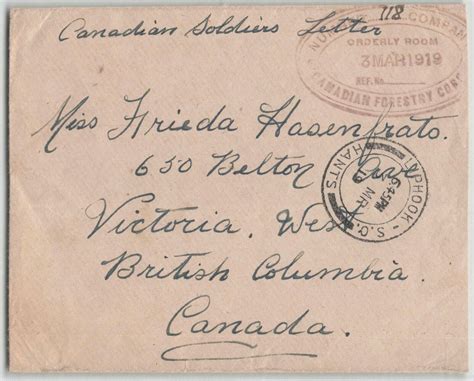 118
Canadian Soldiers Letter
COMPAN
ORDERLY ROOM
3 MAR 1919
REF. No.
CANADIAN FORESTRY CORP
Miss Frieda Hasenfratz.
650 Belton Ave
Victoria, West
British Columbia
Canada.
LIPHOOK - S.O.
HANTS
6.45PM
MR
19